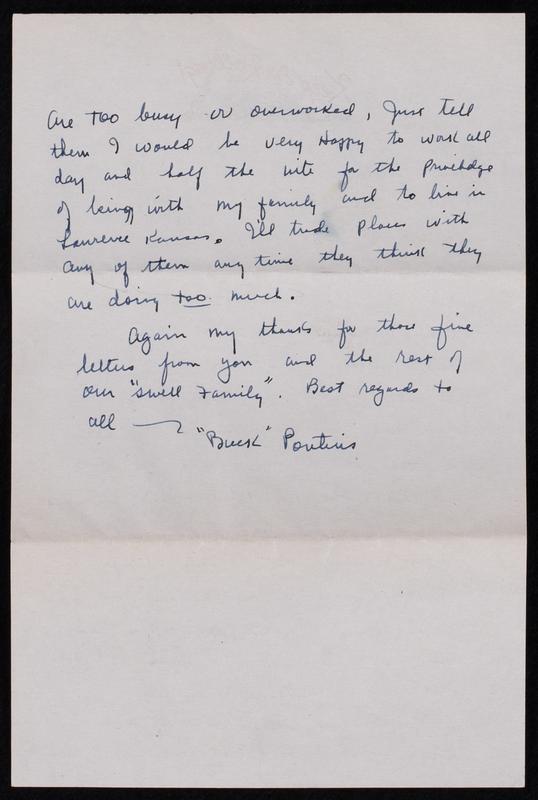 are too busy or overworked, Just tell
them I would be very Happy to work all
day and half the nite for the Priviledge
of being with my family and to live in
Lawrence Kansas. I'll trade Places with
any of them any time they think they
are doing too much.
Again my thanks for those fine
letters from you and the rest of
our "swell Family". Best regards to
all —
"Buck" Pontius